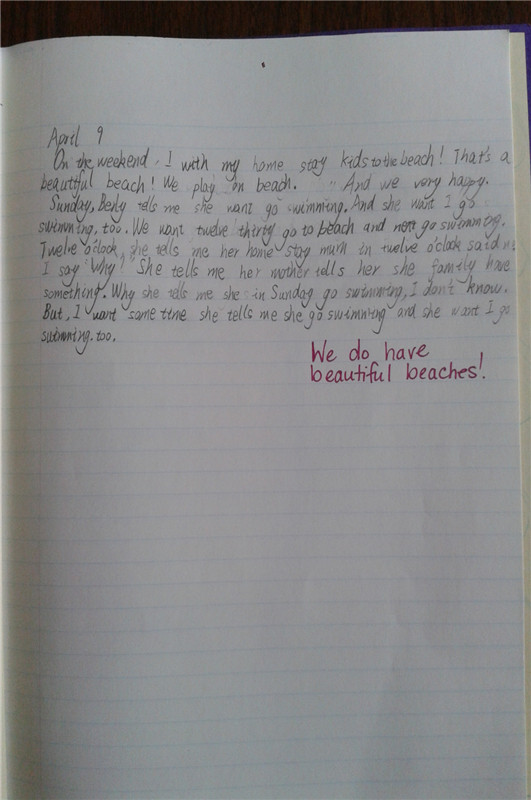 April 9
On the weekend, I with my home stay kids to the beach! That's a
beautiful beach! We play on beach. And we very happy.
Sunday, Beily tells me she want go swimming. And she want I go
swimming, too. We want twelve thirty go to beach and go swimming.
Twelve o'clock, she tells me her home stay mum in twelve o'clock said
I say "Why? She tells me her mother tells her she family have
something. Why she tells me she in Sunday go swimming, I don't know.
But, I want same time she tells me she go swimming and she want I go
swimming. too.
We do have
beautiful beaches!